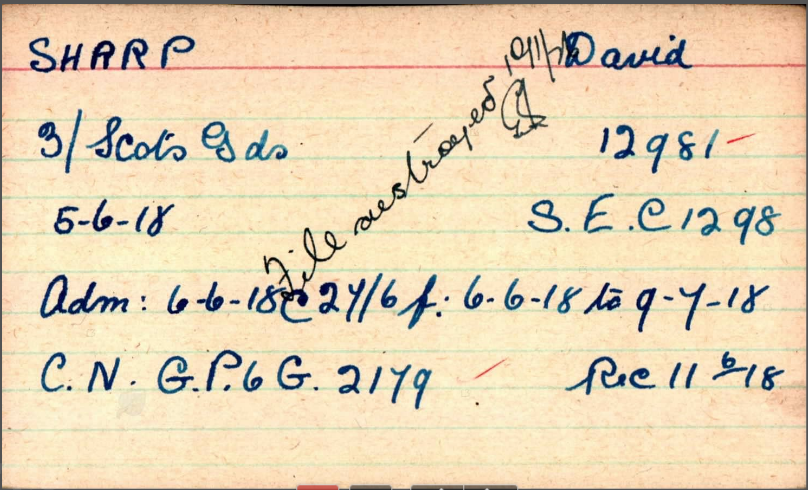 SHARP David
3/ Scots Gds 12981
5-6-18 S.E.C 1298
Adm: 6-6-18 @ 27/6 f: 6-6-18 to 9-7-18
C.N. G.P.6 G. 2179 Rec 11/6/18
File destroyed